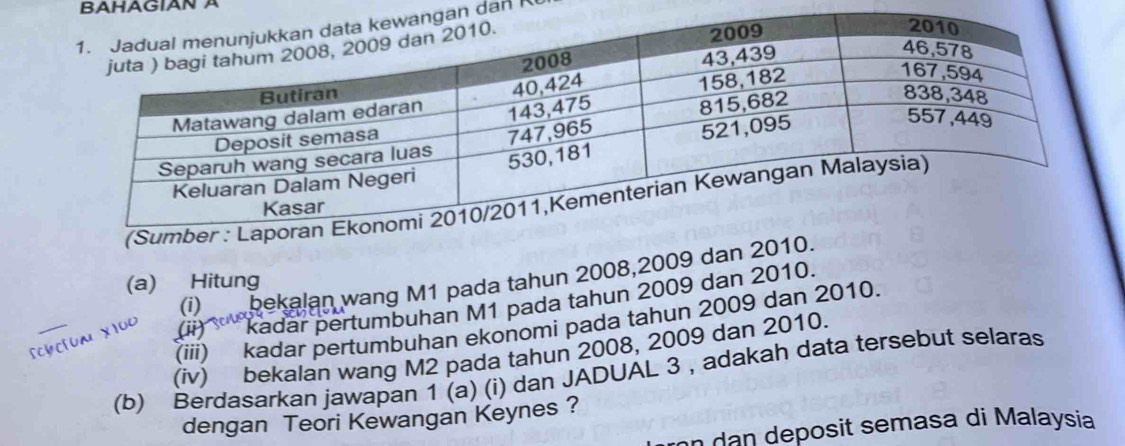 BAHAGIAN A
1. Jadual menunjukkan data kewangan dan
juta ) bagi tahum 2008, 2009 dan 2010.
Butiran 2008 2009 2010
Matawang dalam edaran 40,424 43,439 46,578
Deposit semasa 143,475 158,182 167,594
Separuh wang secara luas 747,965 815,682 838,348
Keluaran Dalam Negeri 530,181 521,095 557,449
Kasar
(Sumber : Laporan Ekonomi 2010/2011,Kementerian Kewangan Malaysia)
(a) Hitung
(i) bekalan wang M1 pada tahun 2008,2009 dan 2010.
(ii) kadar pertumbuhan M1 pada tahun 2009 dan 2010.
sebelum x100
(iii) kadar pertumbuhan ekonomi pada tahun 2009 dan 2010.
(iv) bekalan wang M2 pada tahun 2008, 2009 dan 2010.
(b) Berdasarkan jawapan 1 (a) (i) dan JADUAL 3 , adakah data tersebut selaras
dengan Teori Kewangan Keynes ?
dan deposit semasa di Malaysia